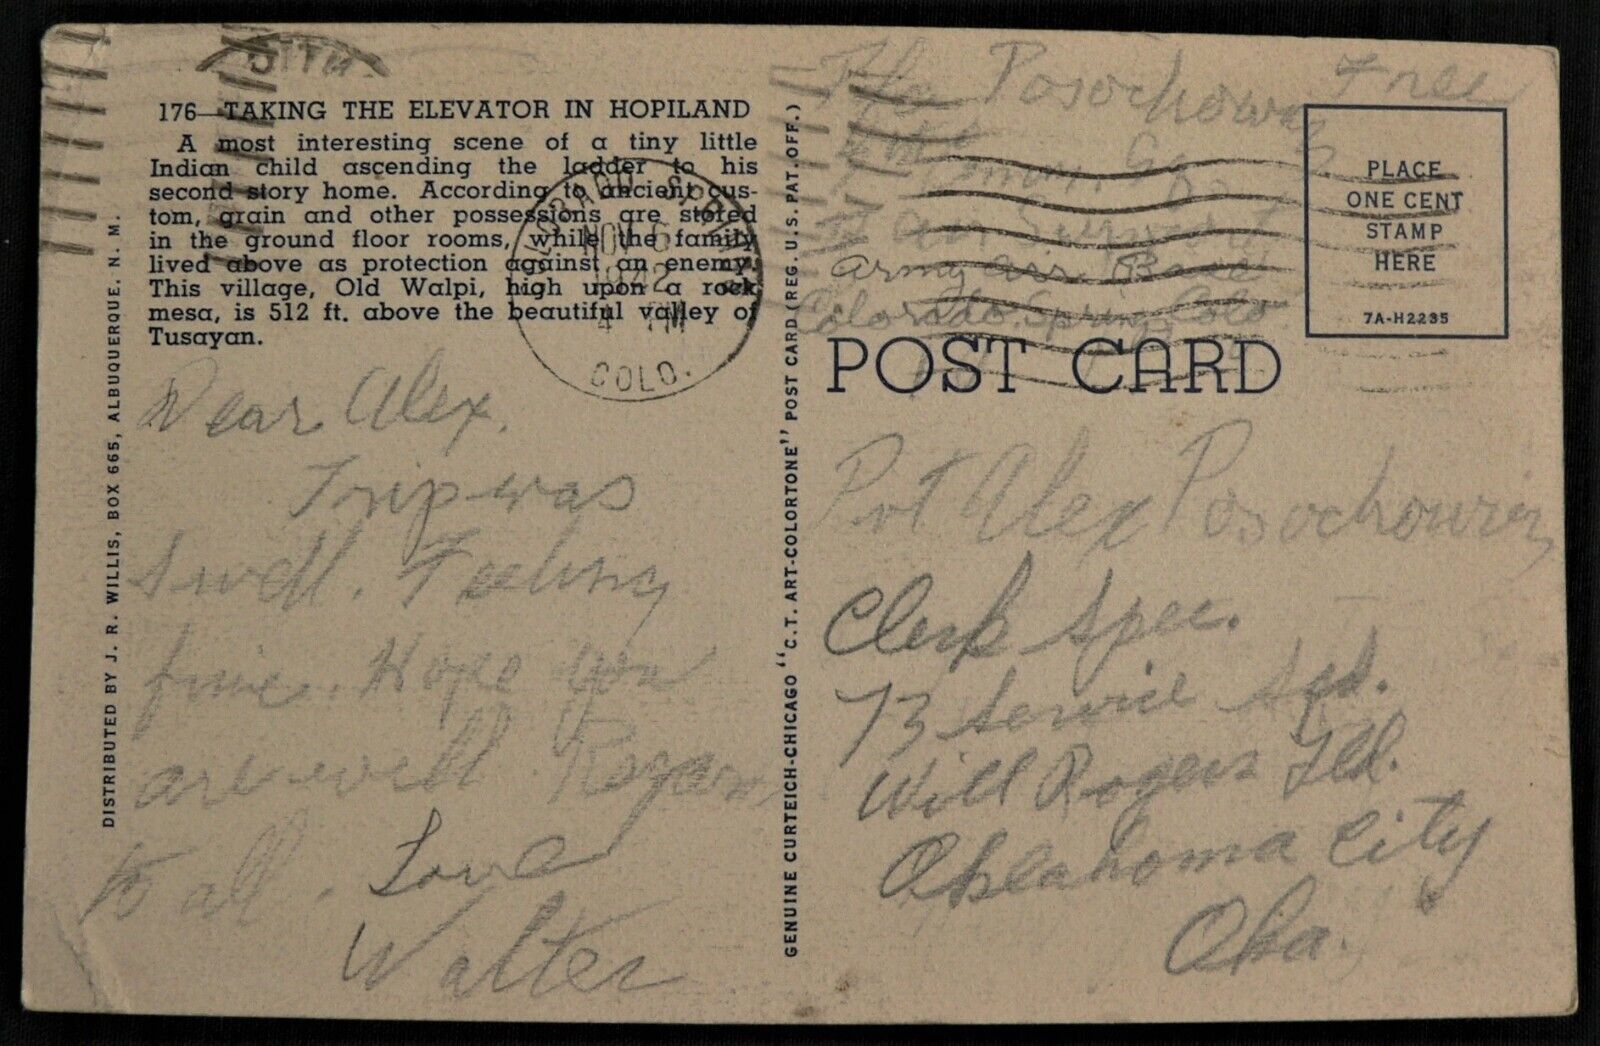 176—TAKING THE ELEVATOR IN HOPILAND
A most interesting scene of a tiny little
Indian child ascending the ladder to his
second story home. According to ancient cus-
tom, grain and other possessions are stored
in the ground floor rooms, while the family
lived above as protection against an enemy.
This village, Old Walpi, high upon a rock
mesa, is 512 ft. above the beautiful valley of
Tusayan.
DISTRIBUTED BY J. R. WILLIS, BOX 665, ALBUQUERQUE, N. M.
NOV 6
1942
4 PM
COLO.
Dear Alex.
Trip was
Swell. Feeling
fine. Hope you
are well.
to all. Love
Walter
GENUINE CURTEICH-CHICAGO "C.T. ART-COLORTONE" POST CARD (REG. U.S. PAT. OFF.)
Posochowicz Free
Army Air Base
Colorado Spring Colo
PLACE
ONE CENT
STAMP
HERE
7A-H2235
POST CARD
Pvt Alex Posochowicz
Clerk Spec.
73 Service Sqd.
Will Rogers Fld.
Oklahoma City
Okla.